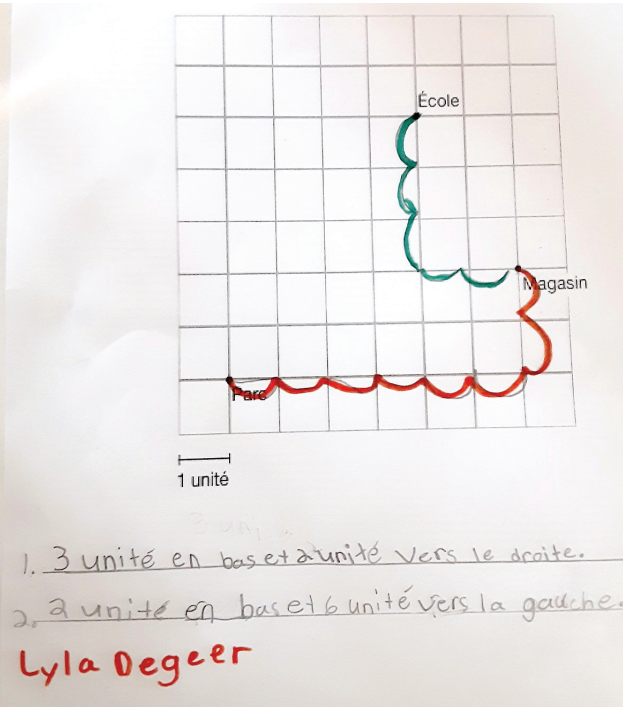 École
Magasin
Parc
1 unité
1. 3 unité en bas et 2 unité vers le droite.
2. 2 unité en bas et 6 unité vers la gauche.
Lyla Degeer